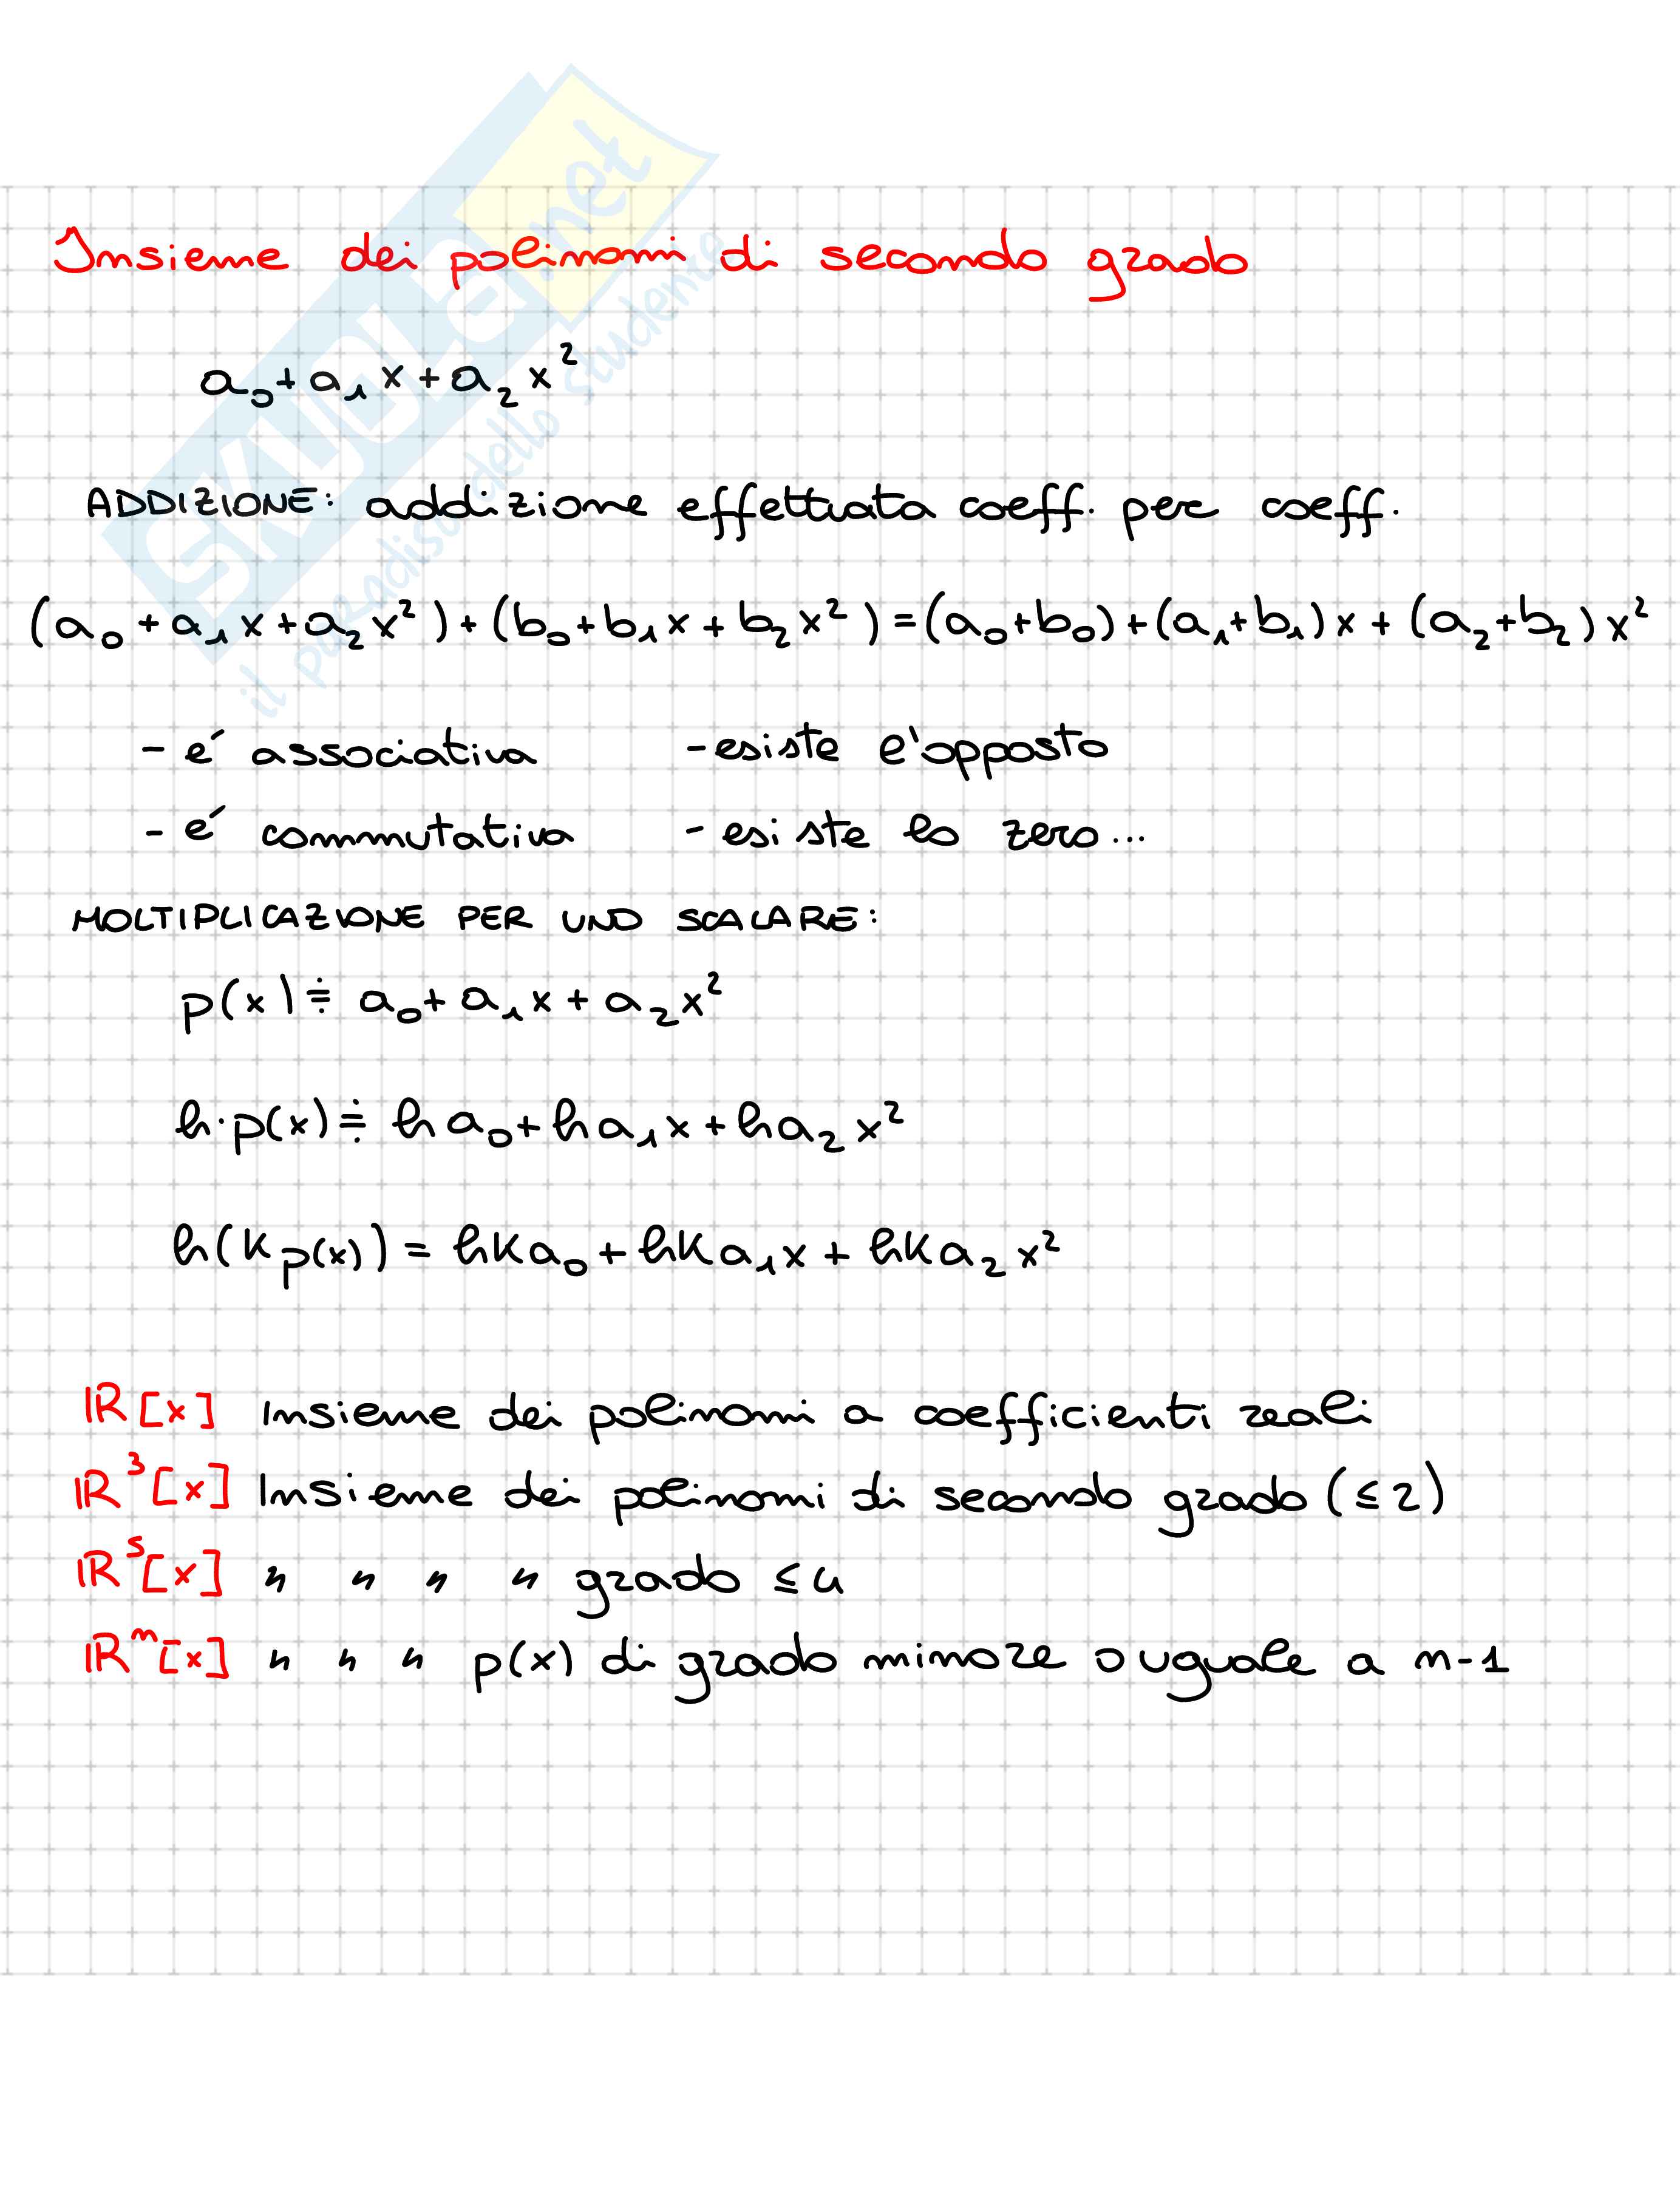 SKUOLA.net
il paradiso dello studente
Insieme dei polinomi di secondo grado
a₀+a₁x+a₂x²
ADDIZIONE: addizione effettuata coeff. per coeff.
(a₀+a₁x+a₂x²)+(b₀+b₁x+b₂x²)=(a₀+b₀)+(a₁+b₁)x+(a₂+b₂)x²
- é associativa - esiste l'opposto
- é commutativa - esiste lo zero...
MOLTIPLICAZIONE PER UNO SCALARE:
p(x)≑a₀+a₁x+a₂x²
h·p(x)≑ha₀+ha₁x+ha₂x²
h(kp(x))=hka₀+hka₁x+hka₂x²
ℝ[x] Insieme dei polinomi a coefficienti reali
ℝ³[x] Insieme dei polinomi di secondo grado (≤2)
ℝ⁵[x] " " " " grado ≤4
ℝⁿ[x] " " " p(x) di grado minore o uguale a n-1